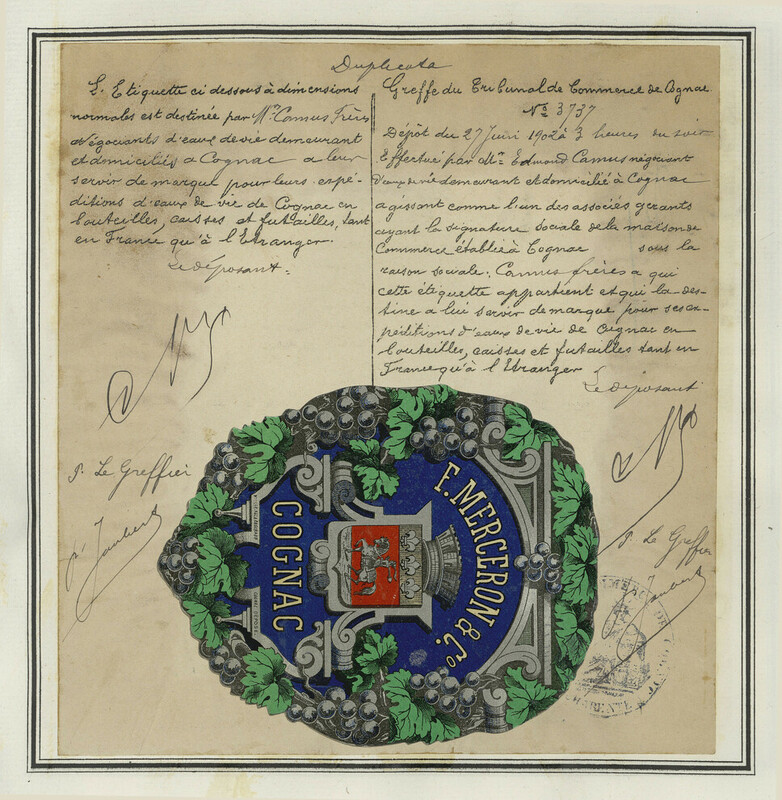 Duplicata
L'Etiquette ci dessous à dimensions
normales est destinée par Mrs Camus Frères
Négociants d'eaux de vie demeurant
et domiciliés à Cognac a leur
servir de marque pour leurs expé-
ditions d'eaux de vie de Cognac en
bouteilles, caisses et futailles, tant
en France qu'à l'Etranger.
Le déposant.
P. Le Greffier
Jaubert
Greffe du Tribunal de Commerce de Cognac
No 3737
Dépôt du 27 Juin 1902 à 3 heures du soir
Effectué par Mr Edmond Camus négociant
d'eaux de vie demeurant et domicilié à Cognac
agissant comme l'un des associés gérants
ayant la signature sociale de la maison de
Commerce établie à Cognac sous la
raison sociale: Camus frères a qui
cette étiquette appartient et qui la des-
tine a lui servir de marque pour ses ex-
péditions d'eaux de vie de Cognac en
bouteilles, caisses et futailles tant en
France qu'à l'Etranger
Le déposant
P. Le Greffier
Jaubert
F. MERCERON & Co.
COGNAC